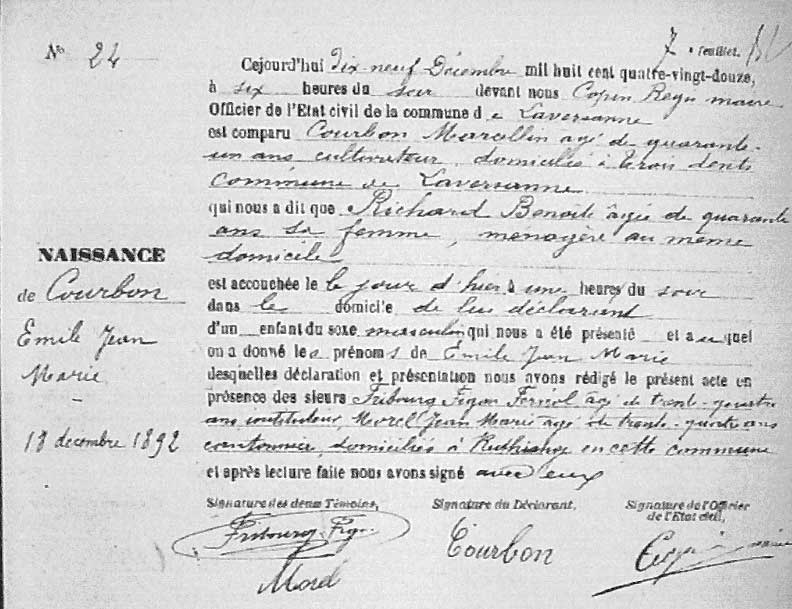 N° 24
7e feuillet.
Cejourd'hui dix neuf Décembre mil huit cent quatre-vingt-douze,
à six heures du soir devant nous Copin Régis maire
Officier de l'Etat civil de la commune de Laversanne
est comparu Courbon Marcellin agé de quarante-
un ans cultivateur, domicilié à trois dents
commune de Laversanne
qui nous a dit que Richard Benoite âgée de quarante
ans sa femme, ménagère au même
domicile
est accouchée le le jour d'hier à une heure du soir
dans le domicile de lui déclarant
d'un enfant du sexe masculin qui nous a été présenté et auquel
on a donné les prénoms de Emile Jean Marie
desquelles déclaration et présentation nous avons rédigé le présent acte en
présence des sieurs Fribourg Figon âgé de trente-quatre
ans instituteur, Morel Jean Marie âgé de trente-quatre ans
cantonnier, domiciliés à en cette commune
et après lecture faite nous avons signé avec eux
NAISSANCE
de Courbon
Emile Jean
Marie
-
18 décembre 1892
Signature des deux Témoins, Signature du Déclarant, Signature de l'Officier
de l'Etat civil,
Fribourg Courbon maire
Morel